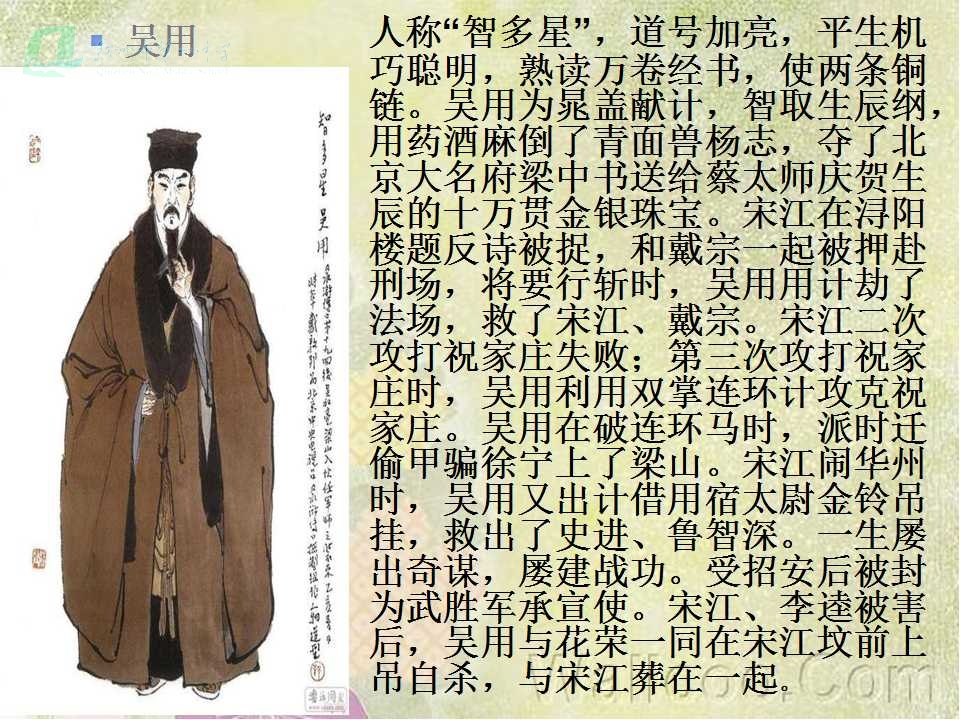 吴用
人称“智多星”，道号加亮，平生机
巧聪明，熟读万卷经书，使两条铜
链。吴用为晁盖献计，智取生辰纲，
用药酒麻倒了青面兽杨志，夺了北
京大名府梁中书送给蔡太师庆贺生
辰的十万贯金银珠宝。宋江在浔阳
楼题反诗被捉，和戴宗一起被押赴
刑场，将要行斩时，吴用用计劫了
法场，救了宋江、戴宗。宋江二次
攻打祝家庄失败；第三次攻打祝家
庄时，吴用利用双掌连环计攻克祝
家庄。吴用在破连环马时，派时迁
偷甲骗徐宁上了梁山。宋江闹华州
时，吴用又出计借用宿太尉金铃吊
挂，救出了史进、鲁智深。一生屡
出奇谋，屡建战功。受招安后被封
为武胜军承宣使。宋江、李逵被害
后，吴用与花荣一同在宋江坟前上
吊自杀，与宋江葬在一起。
智多星 吴用